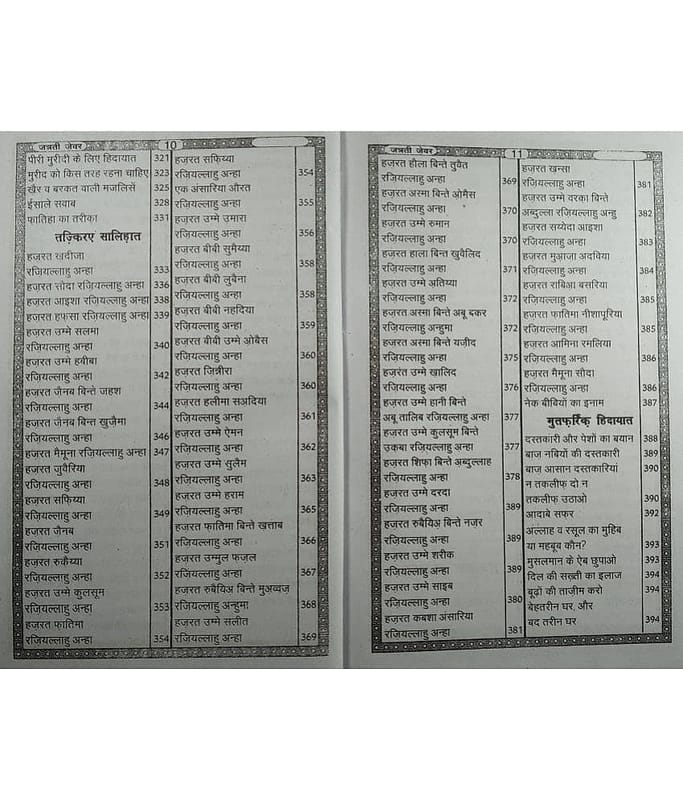 जन्नती जेवर
10
पीरी मुरीदी के लिए हिदायात 321
मुरीद को किस तरह रहना चाहिए 323
खैर व बरकत वाली मजलिसें 325
ईसाले सवाब 328
फातिहा का तरीका 331
तज़्किरए सालिहात
हज़रत खदीजा
रज़ियल्लाहु अन्हा 333
हज़रत सौदा रज़ियल्लाहु अन्हा 336
हज़रत आइशा रज़ियल्लाहु अन्हा 338
हज़रत हफसा रज़ियल्लाहु अन्हा 339
हज़रत उम्मे सलमा
रज़ियल्लाहु अन्हा 340
हज़रत उम्मे हबीबा
रज़ियल्लाहु अन्हा 342
हज़रत जैनब बिन्ते जहश
रज़ियल्लाहु अन्हा 344
हज़रत जैनब बिन्त खुज़ैमा
रज़ियल्लाहु अन्हा 346
हज़रत मैमूना रज़ियल्लाहु अन्हा 347
हज़रत जुवैरिया
रज़ियल्लाहु अन्हा 348
हज़रत सफिय्या
रज़ियल्लाहु अन्हा 349
हज़रत जैनब
रज़ियल्लाहु अन्हा 351
हज़रत रुकैय्या
रज़ियल्लाहु अन्हा 352
हज़रत उम्मे कुलसूम
रज़ियल्लाहु अन्हा 353
हज़रत फातिमा
रज़ियल्लाहु अन्हा 354
हज़रत सफिय्या
रज़ियल्लाहु अन्हा 354
एक अंसारिया औरत
रज़ियल्लाहु अन्हा 355
हज़रत उम्मे उमारा
रज़ियल्लाहु अन्हा 356
हज़रत बीबी सुमैय्या
रज़ियल्लाहु अन्हा 358
हज़रत बीबी लुबैना
रज़ियल्लाहु अन्हा 358
हज़रत बीबी नहदिया
रज़ियल्लाहु अन्हा 359
हज़रत बीबी उम्मे ओबैस
रज़ियल्लाहु अन्हा 360
हज़रत ज़िन्नीरा
रज़ियल्लाहु अन्हा 360
हज़रत हलीमा सअदिया
रज़ियल्लाहु अन्हा 361
हज़रत उम्मे ऐमन
रज़ियल्लाहु अन्हा 362
हज़रत उम्मे सुलैम
रज़ियल्लाहु अन्हा 363
हज़रत उम्मे हराम
रज़ियल्लाहु अन्हा 365
हज़रत फातिमा बिन्ते खत्ताब
रज़ियल्लाहु अन्हा 366
हज़रत उम्मुल फज़्ल
रज़ियल्लाहु अन्हा 367
हज़रत रुबैयिअ बिन्ते मुअव्वज़
रज़ियल्लाहु अन्हुमा 368
हज़रत उम्मे सलीत
रज़ियल्लाहु अन्हा 369
जन्नती जेवर
11
हज़रत हौला बिन्ते तुवैत
रज़ियल्लाहु अन्हा 369
हज़रत अस्मा बिन्ते ओमैस
रज़ियल्लाहु अन्हा 370
हज़रत उम्मे रुमान
रज़ियल्लाहु अन्हा 370
हज़रत हाला बिन्त खुवैलिद
रज़ियल्लाहु अन्हा 371
हज़रत उम्मे अतिय्या
रज़ियल्लाहु अन्हा 372
हज़रत अस्मा बिन्ते अबू बकर
रज़ियल्लाहु अन्हुमा 372
हज़रत अस्मा बिन्ते यज़ीद
रज़ियल्लाहु अन्हा 375
हज़रत उम्मे खालिद
रज़ियल्लाहु अन्हा 376
हज़रत उम्मे हानी बिन्ते
अबू तालिब रज़ियल्लाहु अन्हा 377
हज़रत उम्मे कुलसूम बिन्ते
उकबा रज़ियल्लाहु अन्हा 377
हज़रत शिफा बिन्ते अब्दुल्लाह
रज़ियल्लाहु अन्हा 378
हज़रत उम्मे दरदा
रज़ियल्लाहु अन्हा 389
हज़रत रुबैयिअ बिन्ते नज़र
रज़ियल्लाहु अन्हा 389
हज़रत उम्मे शरीक
रज़ियल्लाहु अन्हा 389
हज़रत उम्मे साइब
रज़ियल्लाहु अन्हा 380
हज़रत कबशा अंसारिया
रज़ियल्लाहु अन्हा 381
हज़रत खन्सा
रज़ियल्लाहु अन्हा 381
हज़रत उम्मे वरका बिन्ते
अब्दुल्ला रज़ियल्लाहु अन्हु 382
हज़रत सय्येदा आइशा
रज़ियल्लाहु अन्हा 383
हज़रत मुआज़ा अदविया
रज़ियल्लाहु अन्हा 384
हज़रत राबिआ बसरिया
रज़ियल्लाहु अन्हा 385
हज़रत फातिमा नीशापूरिया
रज़ियल्लाहु अन्हा 385
हज़रत आमिना रमलिया
रज़ियल्लाहु अन्हा 386
हज़रत मैमूना सौदा
रज़ियल्लाहु अन्हा 386
नेक बीवियों का इनाम 387
मुतफ़र्रिक़ हिदायात
दस्तकारी और पेशों का बयान 388
बाज़ नबियों की दस्तकारी 389
बाज़ आसान दस्तकारियां 390
न तकलीफ दो न
तकलीफ उठाओ 390
आदाबे सफर 392
अल्लाह व रसूल का मुहिब
या महबूब कौन? 393
मुसलमान के ऐब छुपाओ 393
दिल की सख़्ती का इलाज 394
बूढों की ताज़ीम करो 394
बेहतरीन घर, और
बद तरीन घर 394